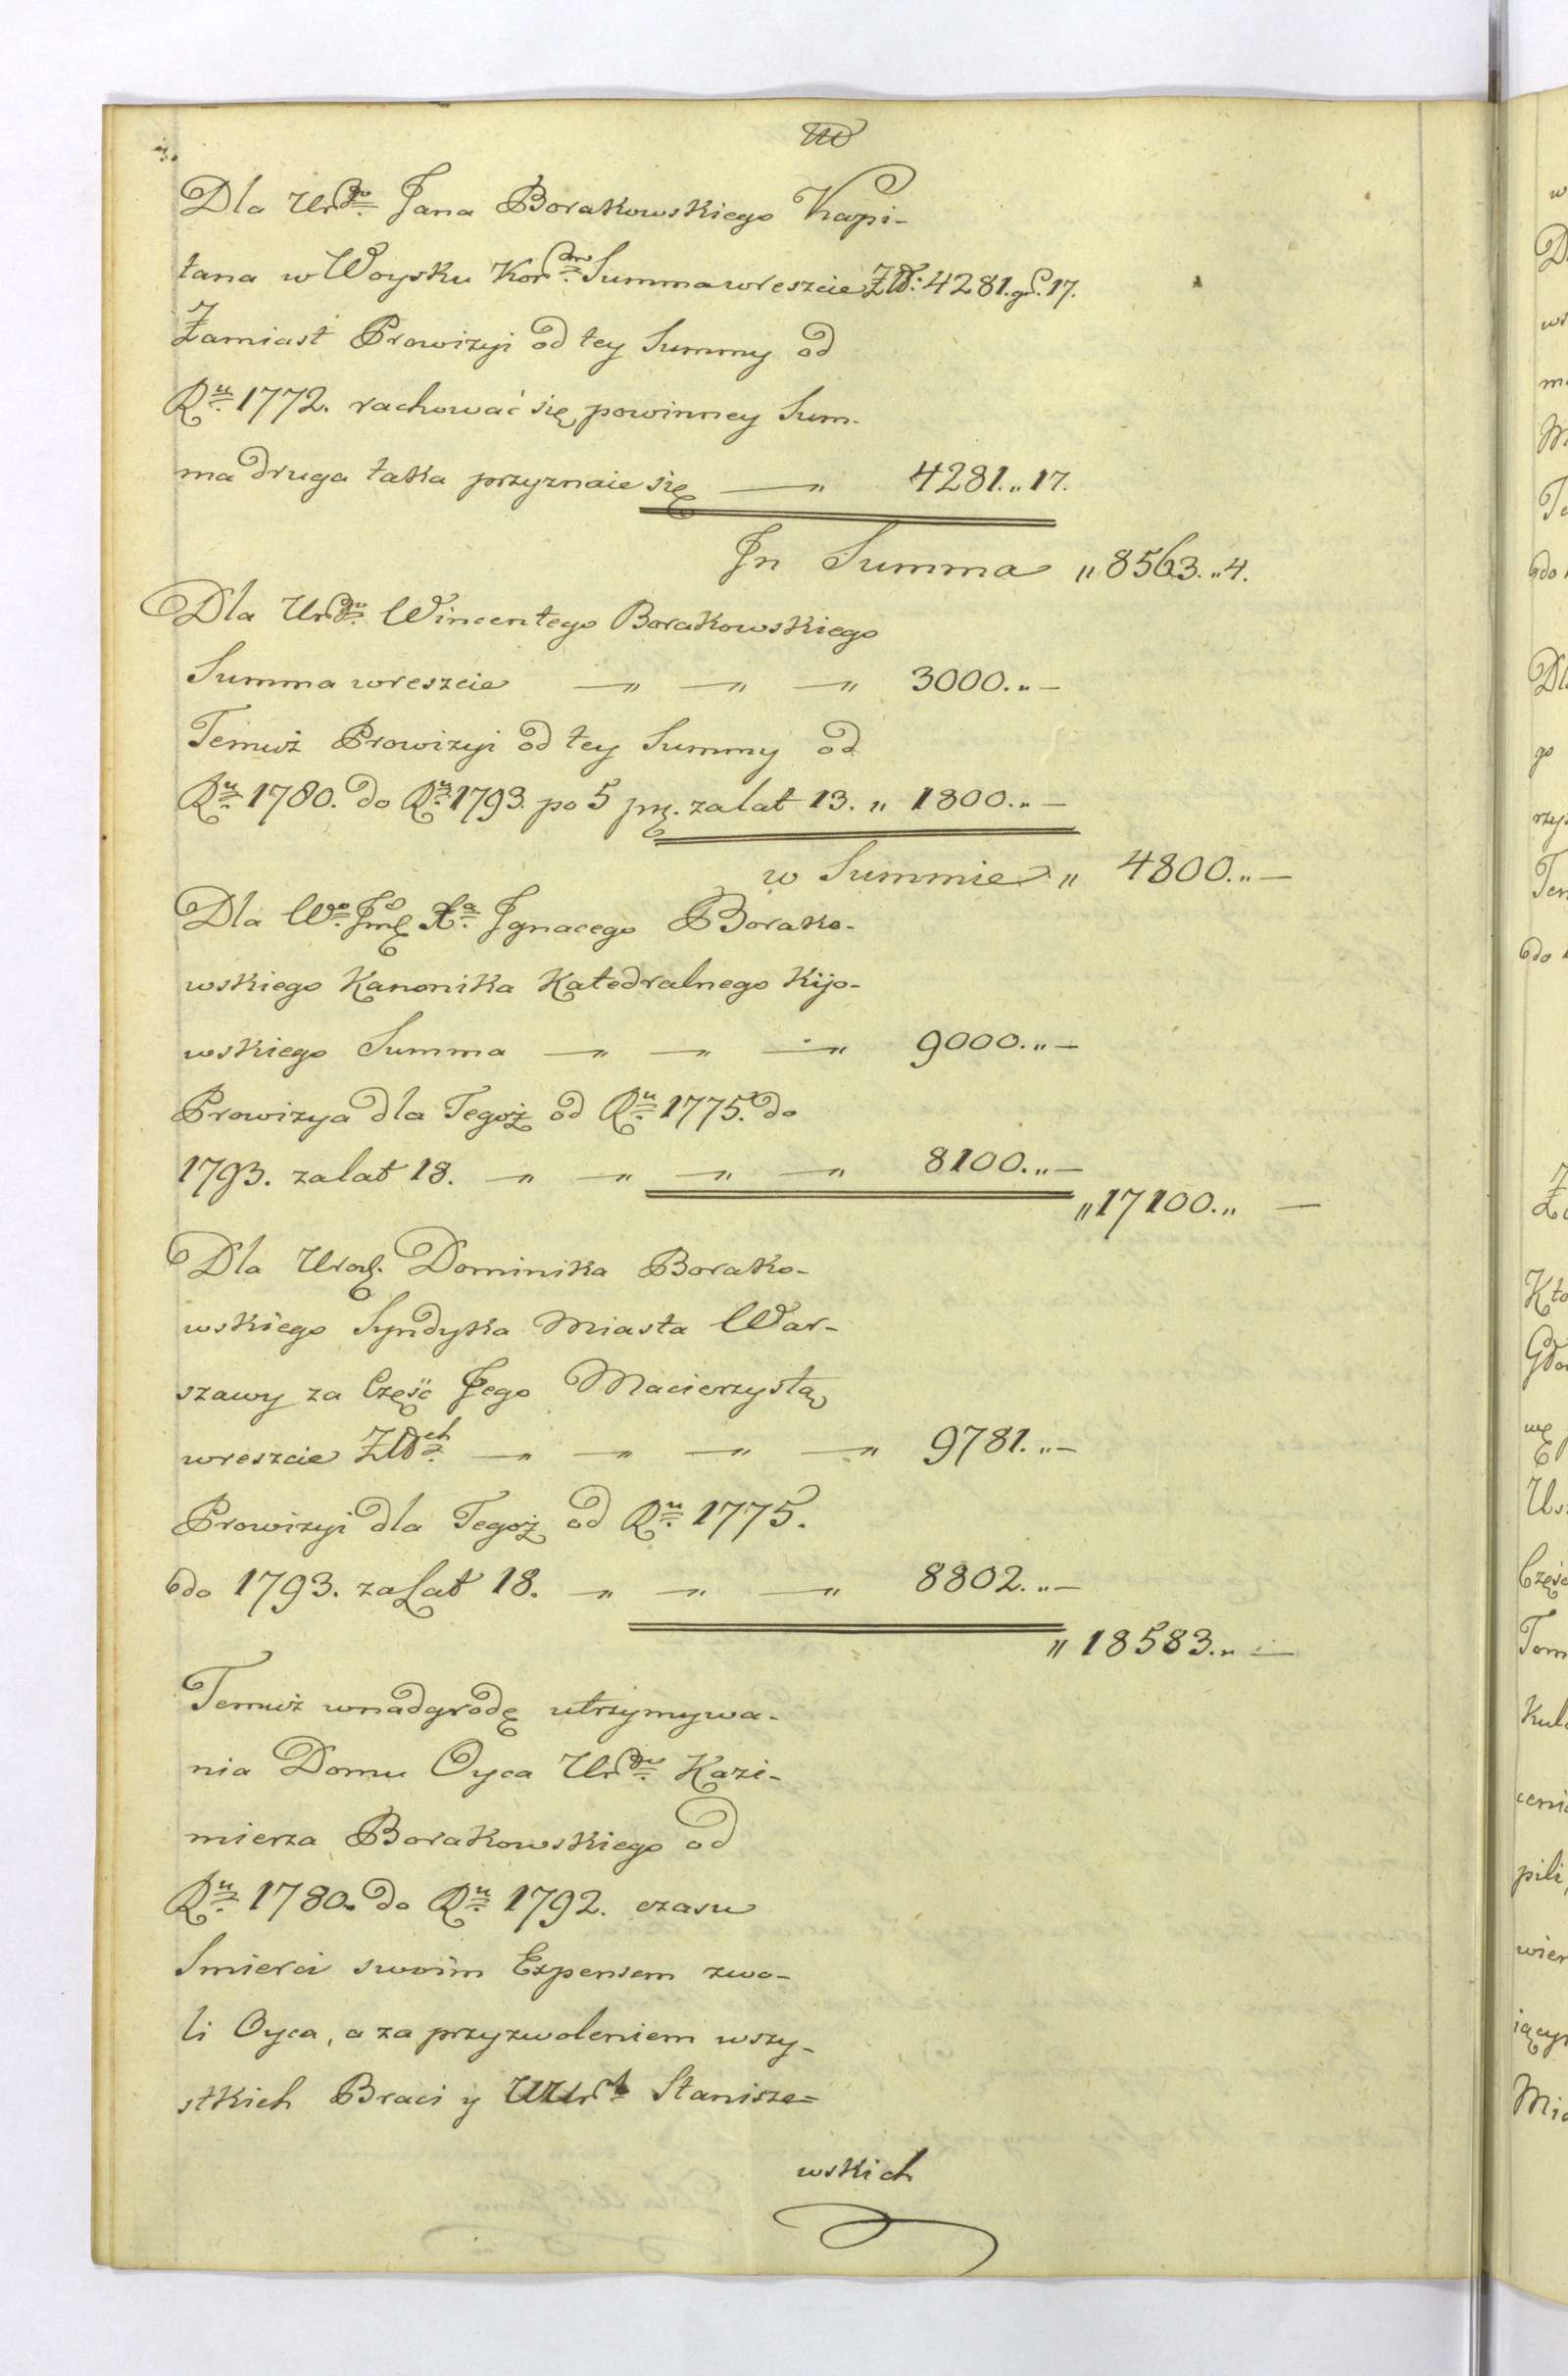 Dla Urdgo Jana Borakowskiego Kapi-
tana w Woysku Kor. Summa wreszcie Zł: 4281. gr. 17.
Zamiast Prowizyi od tey Summy od
Ru 1772. rachować się powinney Sum-
ma druga taka przyznaie się — „ 4281. „ 17.
Jn Summa „ 8563. „ 4.
Dla Urdgo Wincentego Borakowskiego
Summa wreszcie — „ — „ — „ 3000. „ —
Temuż Prowizyi od tey Summy od
Ru 1780. do Ru 1793. po 5 prę. za lat 13. „ 1800. „ —
w Summie „ 4800. „ —
Dla Wo Jmę Xa Jgnacego Borako-
wskiego Kanonika Katedralnego Kijo-
wskiego Summa — „ — „ — „ 9000. „ —
Prowizya dla Tegoż od Ru 1775. do
1793. za lat 18. — „ — „ — „ — „ 8100. „ —
„ 17100. „ —
Dla Urodz. Dominika Borako-
wskiego Syndyka Miasta War-
szawy za Część Jego Macierzystą
wreszcie Złch — „ — „ — „ — „ 9781. „ —
Prowizyi dla Tegoż od Ru 1775.
do 1793. za Lat 18. — „ — „ — „ 8802. „ —
„ 18583. „ —
Temuż w nadgrodę utrzymywa-
nia Domu Oyca Urdgo Kazi-
mierza Borakowskiego od
Ru 1780. do Ru 1792. czasu
Smierci swoim Expensem zwo-
li Oyca, a za przyzwoleniem wszy-
stkich Braci y UUrch Stanisze=
wskich